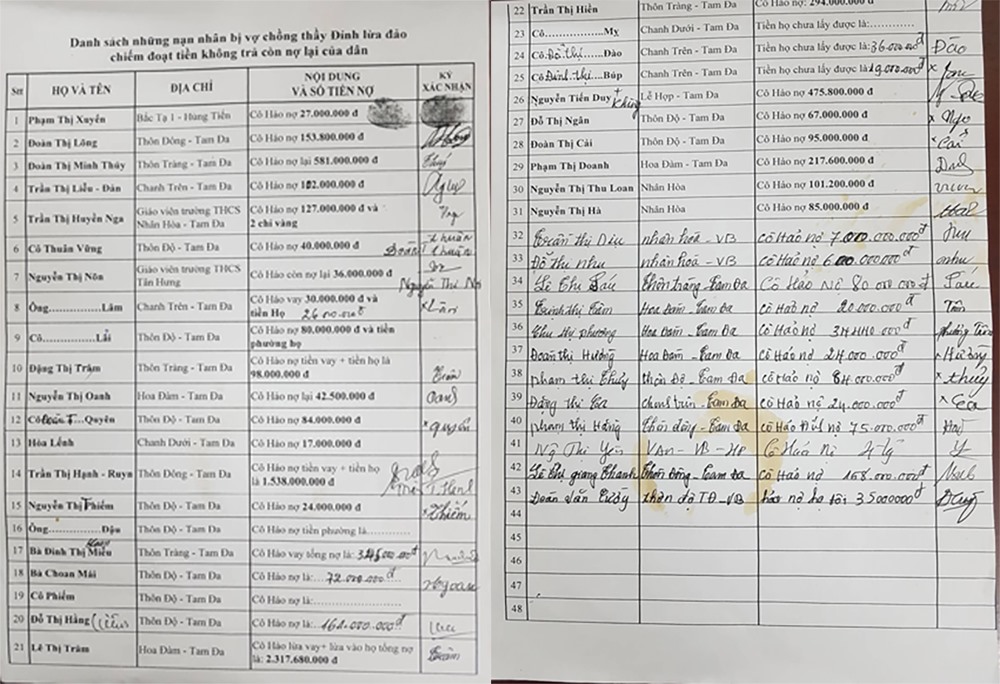 Danh sách những nạn nhân bị vợ chồng thầy Đính lừa đảo
chiếm đoạt tiền không trả còn nợ lại của dân
Stt HỌ VÀ TÊN ĐỊA CHỈ NỘI DUNG VÀ SỐ TIỀN NỢ KÝ XÁC NHẬN
1 Phạm Thị Xuyến Bắc Tạ 1 - Hùng Tiến Cô Hảo nợ 27.000.000 đ
2 Đoàn Thị Lông Thôn Đông - Tam Đa Cô Hảo nợ 153.800.000 đ
3 Đoàn Thị Minh Thúy Thôn Tràng - Tam Đa Cô Hảo nợ lại 581.000.000 đ Thuý
4 Trần Thị Liễu - Đán Chanh Trên - Tam Đa Cô Hảo nợ 102.000.000 đ
5 Trần Thị Huyền Nga Giáo viên trường THCS Nhân Hòa - Tam Đa Cô Hảo nợ 127.000.000 đ và 2 chỉ vàng Nga
6 Cô Thuân Vững Thôn Độ - Tam Đa Cô Hảo nợ 40.000.000 đ
7 Nguyễn Thị Nôn Giáo viên trường THCS Tân Hưng Cô Hảo còn nợ lại 36.000.000 đ Nguyễn Thị
8 Ông................Lâm Chanh Trên - Tam Đa Cô Hảo vay 30.000.000 đ và tiền Họ 26.000.000đ
9 Cô................Lải Thôn Độ - Tam Đa Cô Hảo nợ 80.000.000 đ và tiền phường họ
10 Đặng Thị Trâm Thôn Tràng - Tam Đa Cô Hảo nợ tiền vay + tiền họ là 98.000.000 đ
11 Nguyễn Thị Oanh Hoa Đàm - Tam Đa Cô Hảo nợ lại 42.500.000 đ Oanh
12 Cô ...Quyên Thôn Độ - Tam Đa Cô Hảo nợ 84.000.000 đ × quyên
13 Hóa Lềnh Chanh Dưới - Tam Đa Cô Hảo nợ 17.000.000 đ
14 Trần Thị Hạnh - Ruyn Thôn Đông - Tam Đa Cô Hảo nợ tiền vay + tiền họ là 1.538.000.000 đ
15 Nguyễn Thị Thiêm Thôn Độ - Tam Đa Cô Hảo nợ 24.000.000 đ × Thiêm
16 Ông................Đậu Thôn Độ - Tam Đa Cô Hảo nợ tiền phường là............
17 Bà Đinh Thị Miều Thôn Tràng - Tam Đa Cô Hảo vay tổng nợ là:
18 Bà Choan Mái Thôn Độ - Tam Đa Cô Hảo nợ là:....72.000.000đ
19 Cô Phiếm Thôn Độ - Tam Đa Cô Hảo nợ là:........................
20 Đỗ Thị Hằng Thôn Độ - Tam Đa Cô Hảo nợ là:
21 Lê Thị Trâm Hoa Đàm - Tam Đa Cô Hảo lừa vay+ lừa vào họ tổng nợ là: 2.317.680.000 đ
22 Trần Thị Hiền Thôn Tràng - Tam Đa Cô Hảo nợ: 294.000.000 đ
23 Cô................Mỵ Chanh Dưới - Tam Đa Tiền họ chưa lấy được là:................
24 Cô.Đỗ thị....Đào Chanh Trên - Tam Đa Tiền họ chưa lấy được là:36.000.000đ Đào
25 Cô Đinh thị....Búp Chanh Trên - Tam Đa Tiền họ chưa lấy được là:19.000.000đ
26 Nguyễn Tiến Duy + Lễ Hợp - Tam Đa Cô Hảo nợ 475.800.000 đ
27 Đỗ Thị Ngân Thôn Độ - Tam Đa Cô Hảo nợ 67.000.000 đ
28 Đoàn Thị Cải Thôn Độ - Tam Đa Cô Hảo nợ 95.000.000 đ × Cải
29 Phạm Thị Doanh Hoa Đàm - Tam Đa Cô Hảo nợ 217.600.000 đ
30 Nguyễn Thị Thu Loan Nhân Hòa Cô Hảo nợ 101.200.000 đ
31 Nguyễn Thị Hà Nhân Hòa Cô Hảo nợ 85.000.000 đ
32 thị Dịu nhân hoà - VB cô Hảo nợ
33 Đỗ thu như nhân hoà - VB cô Hảo nợ như
34 Lê Thị Sáu Thôn tràng - Tam Đa Cô Hảo Nợ 80 000 000đ Sáu
35 Trịnh thị Tâm Hoa Đàm - Tam Đa Cô Hảo nợ 20.000.000đ Tâm
36 Chu thị phương Hoa Đàm - Tam Đa Cô Hảo nợ
37 Đoàn thị Hường Hoa Đàm - Tam Đa cô Hảo nợ 24.000.000đ × Hường
38 phạm thị Thủy thôn Độ - Tam Đa cô Hảo nợ 84.000.000đ × thủy
39 Đặng thị - Tam Đa cô Hảo nợ 24.000.000đ
40 phạm thị Hằng Thôn đông - Tam Đa cô Hảo nợ 75.000.000đ
41 Ngô Thị Yến VAn - VB - HP Cô Hảo nợ 4 tỷ
42 Lê thị giang Thanh Thôn Đông - Tam Đa cô Hảo nợ 168.000.000đ
43 Đoàn Văn thôn độ TĐ - VB hảo nợ họ tôi 35000000đ
44
45
46
47
48